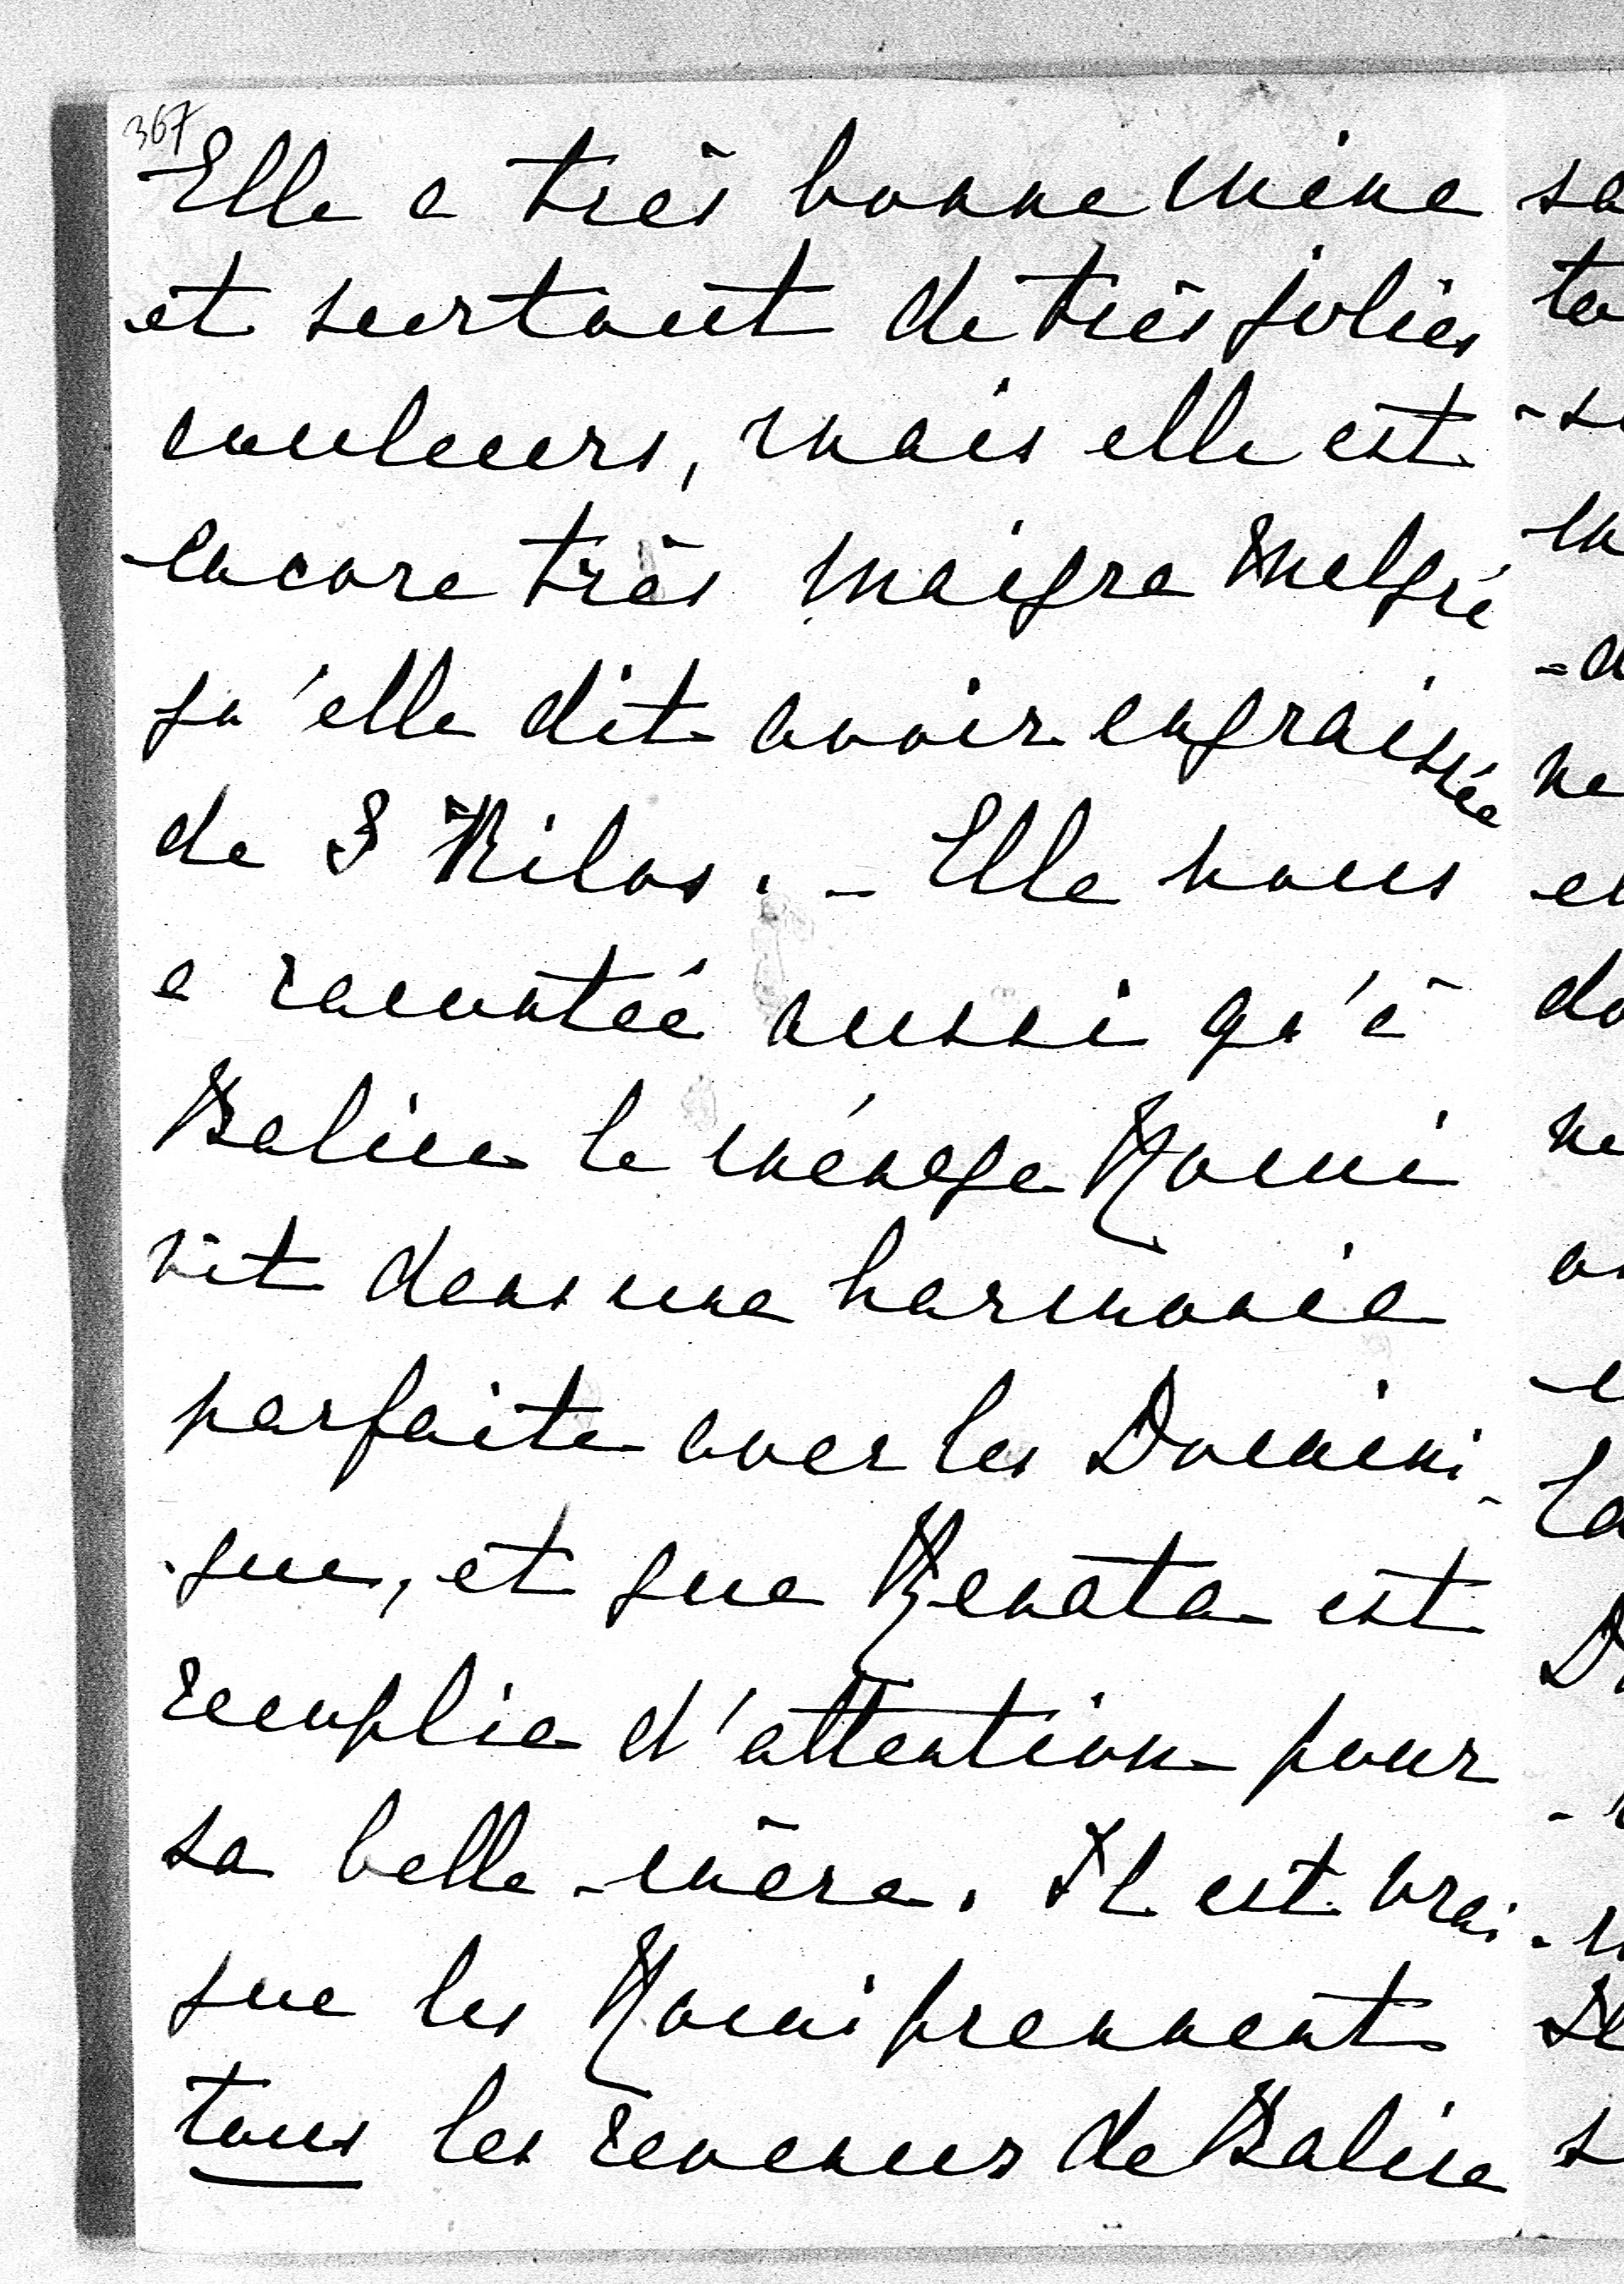 367
Elle a très bonne mine
et surtout de très jolies
couleurs, mais elle est
encore très maigre malgré
qu'elle dit avoir engraissée
de 3 Kilos. - Elle nous
a racontée aussi qu'à
Balice le ménage Momi
vit dans une harmonie
parfaite avec les Domini-
que, et que Renata est
remplie d'attention pour
sa belle-mère. Il est vrai
que les Momi prennent
tous les revenus de Balice